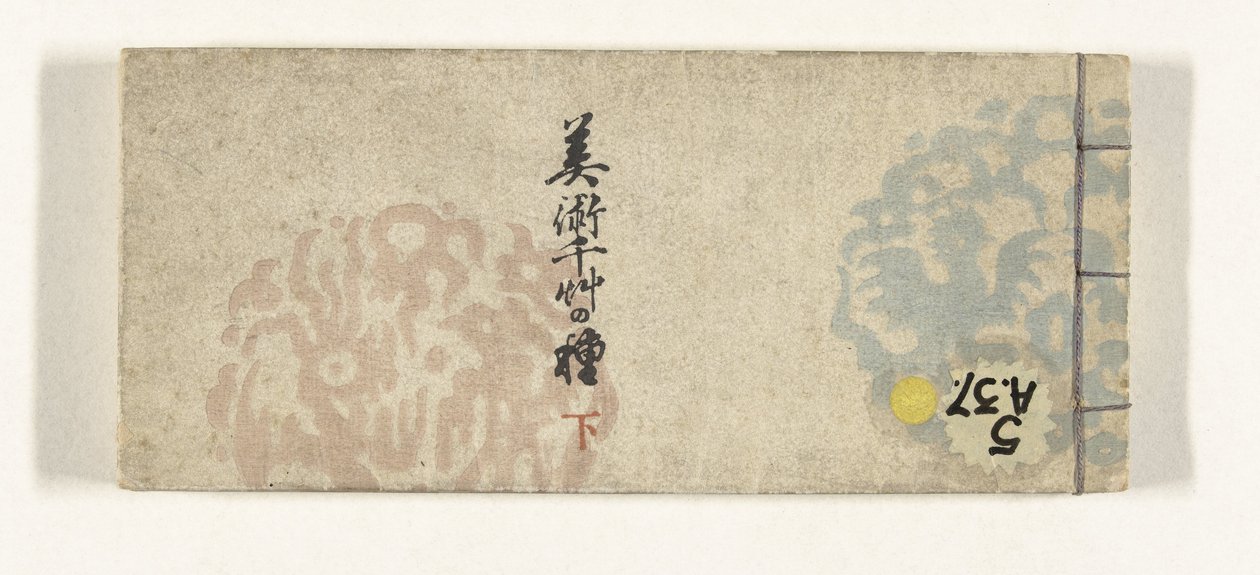 美術千艸の種
下
5
A.37.